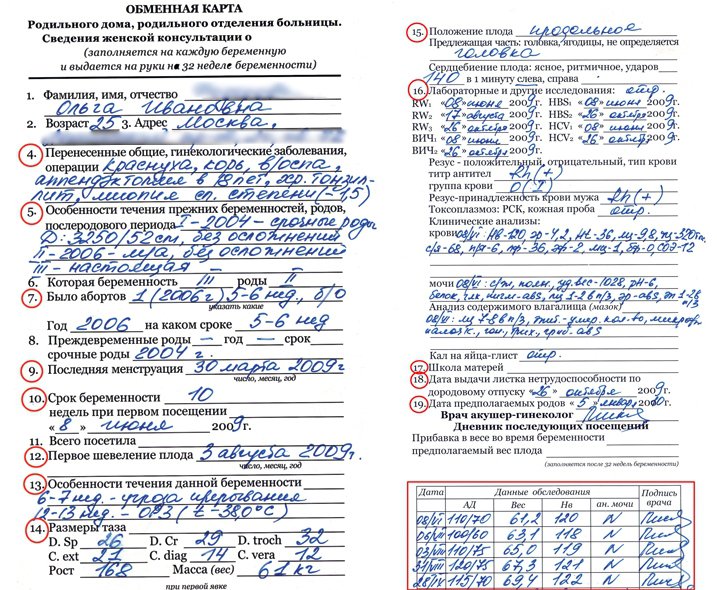 ОБМЕННАЯ КАРТА
Родильного дома, родильного отделения больницы.
Сведения женской консультации о
(заполняется на каждую беременную
и выдается на руки на 32 неделе беременности)
1. Фамилия, имя, отчество
Ольга Ивановна
2. Возраст 25 3. Адрес Москва,
4. Перенесенные общие, гинекологические заболевания,
операции краснуха, корь, в/оспа,
аппендэктомия в 18 лет, хр. тонзил-
лит, миопия сл. степени (-1,5)
5. Особенности течения прежних беременностей, родов,
послеродового периода I - 2004 - срочные роды
D: 3250/52см, без осложнений
II - 2006 - м/а, без осложнений
III - настоящая
6. Которая беременность III роды II
7. Было абортов 1 (2006г) 5-6 нед., б/о
указать какие
Год 2006 на каком сроке 5-6 нед
8. Преждевременные роды — год — срок
срочные роды 2004 г.
9. Последняя менструация 30 марта 2009г
число, месяц, год
10. Срок беременности 10
недель при первом посещении
« 8 » июня 2009г.
11. Всего посетила
12. Первое шевеление плода 3 августа 2009г.
число, месяц, год
13. Особенности течения данной беременности
6-7 нед. - угроза прерывания
12-13 нед. - ОРЗ (t - 38,0°С)
14. Размеры таза
D. Sp 26 D. Cr 29 D. troch 32
C. ext 21 C. diag 14 C. vera 12
Рост 168 Масса (вес) 61 кг
при первой явке
15. Положение плода продольное
Предлежащая часть: головка, ягодицы, не определяется
головка
Сердцебиение плода: ясное, ритмичное, ударов
140 в 1 минуту слева, справа
16. Лабораторные и другие исследования: отр.
RW₁ «08» июня 2009г. HBS₁ «08» июня 2009г.
RW₂ «17» августа 2009г. HBS₂ «26» октября 2009г.
RW₃ «26» октября 2009г. HCV₁ «08» июня 2009г.
ВИЧ₁ «08» июня 2009г. HCV₂ «26» октября 2009г.
ВИЧ₂ «26» октября 2009г.
Резус - положительный, отрицательный, тип крови
титр антител Rh(+)
группа крови O(I)
Резус-принадлежность крови мужа Rh(+)
Токсоплазмоз: РСК, кожная проба отр.
Клинические анализы:
крови 08/VI: НВ-120, эр-4,2, Ht-36, лц-9,8,
с/я-68, п/я-6, СОЭ-12
мочи 08/VI: с/ж, полн, уд.вес-1028, рН-6,
белок,
Анализ содержимого влагалища (мазок)
08/VI:
Кал на яйца-глист отр.
17. Школа матерей
18. Дата выдачи листка нетрудоспособности по
дородовому отпуску «26» октября 2009г.
19. Дата предполагаемых родов « 5 » январ. 2010г.
Врач акушер-гинеколог
Дневник последующих посещений
Прибавка в весе во время беременности
предполагаемый вес плода
(заполняется после 32 недель беременности)
Дата Данные обследования Подпись врача
АД Вес Нв ан. мочи
08/VI 110/70 61,2 120 N
06/VII 100/60 63,1 118 N
03/VIII 110/75 65,0 119 N
31/VIII 120/75 67,3 121 N
28/IX 115/70 69,4 122 N